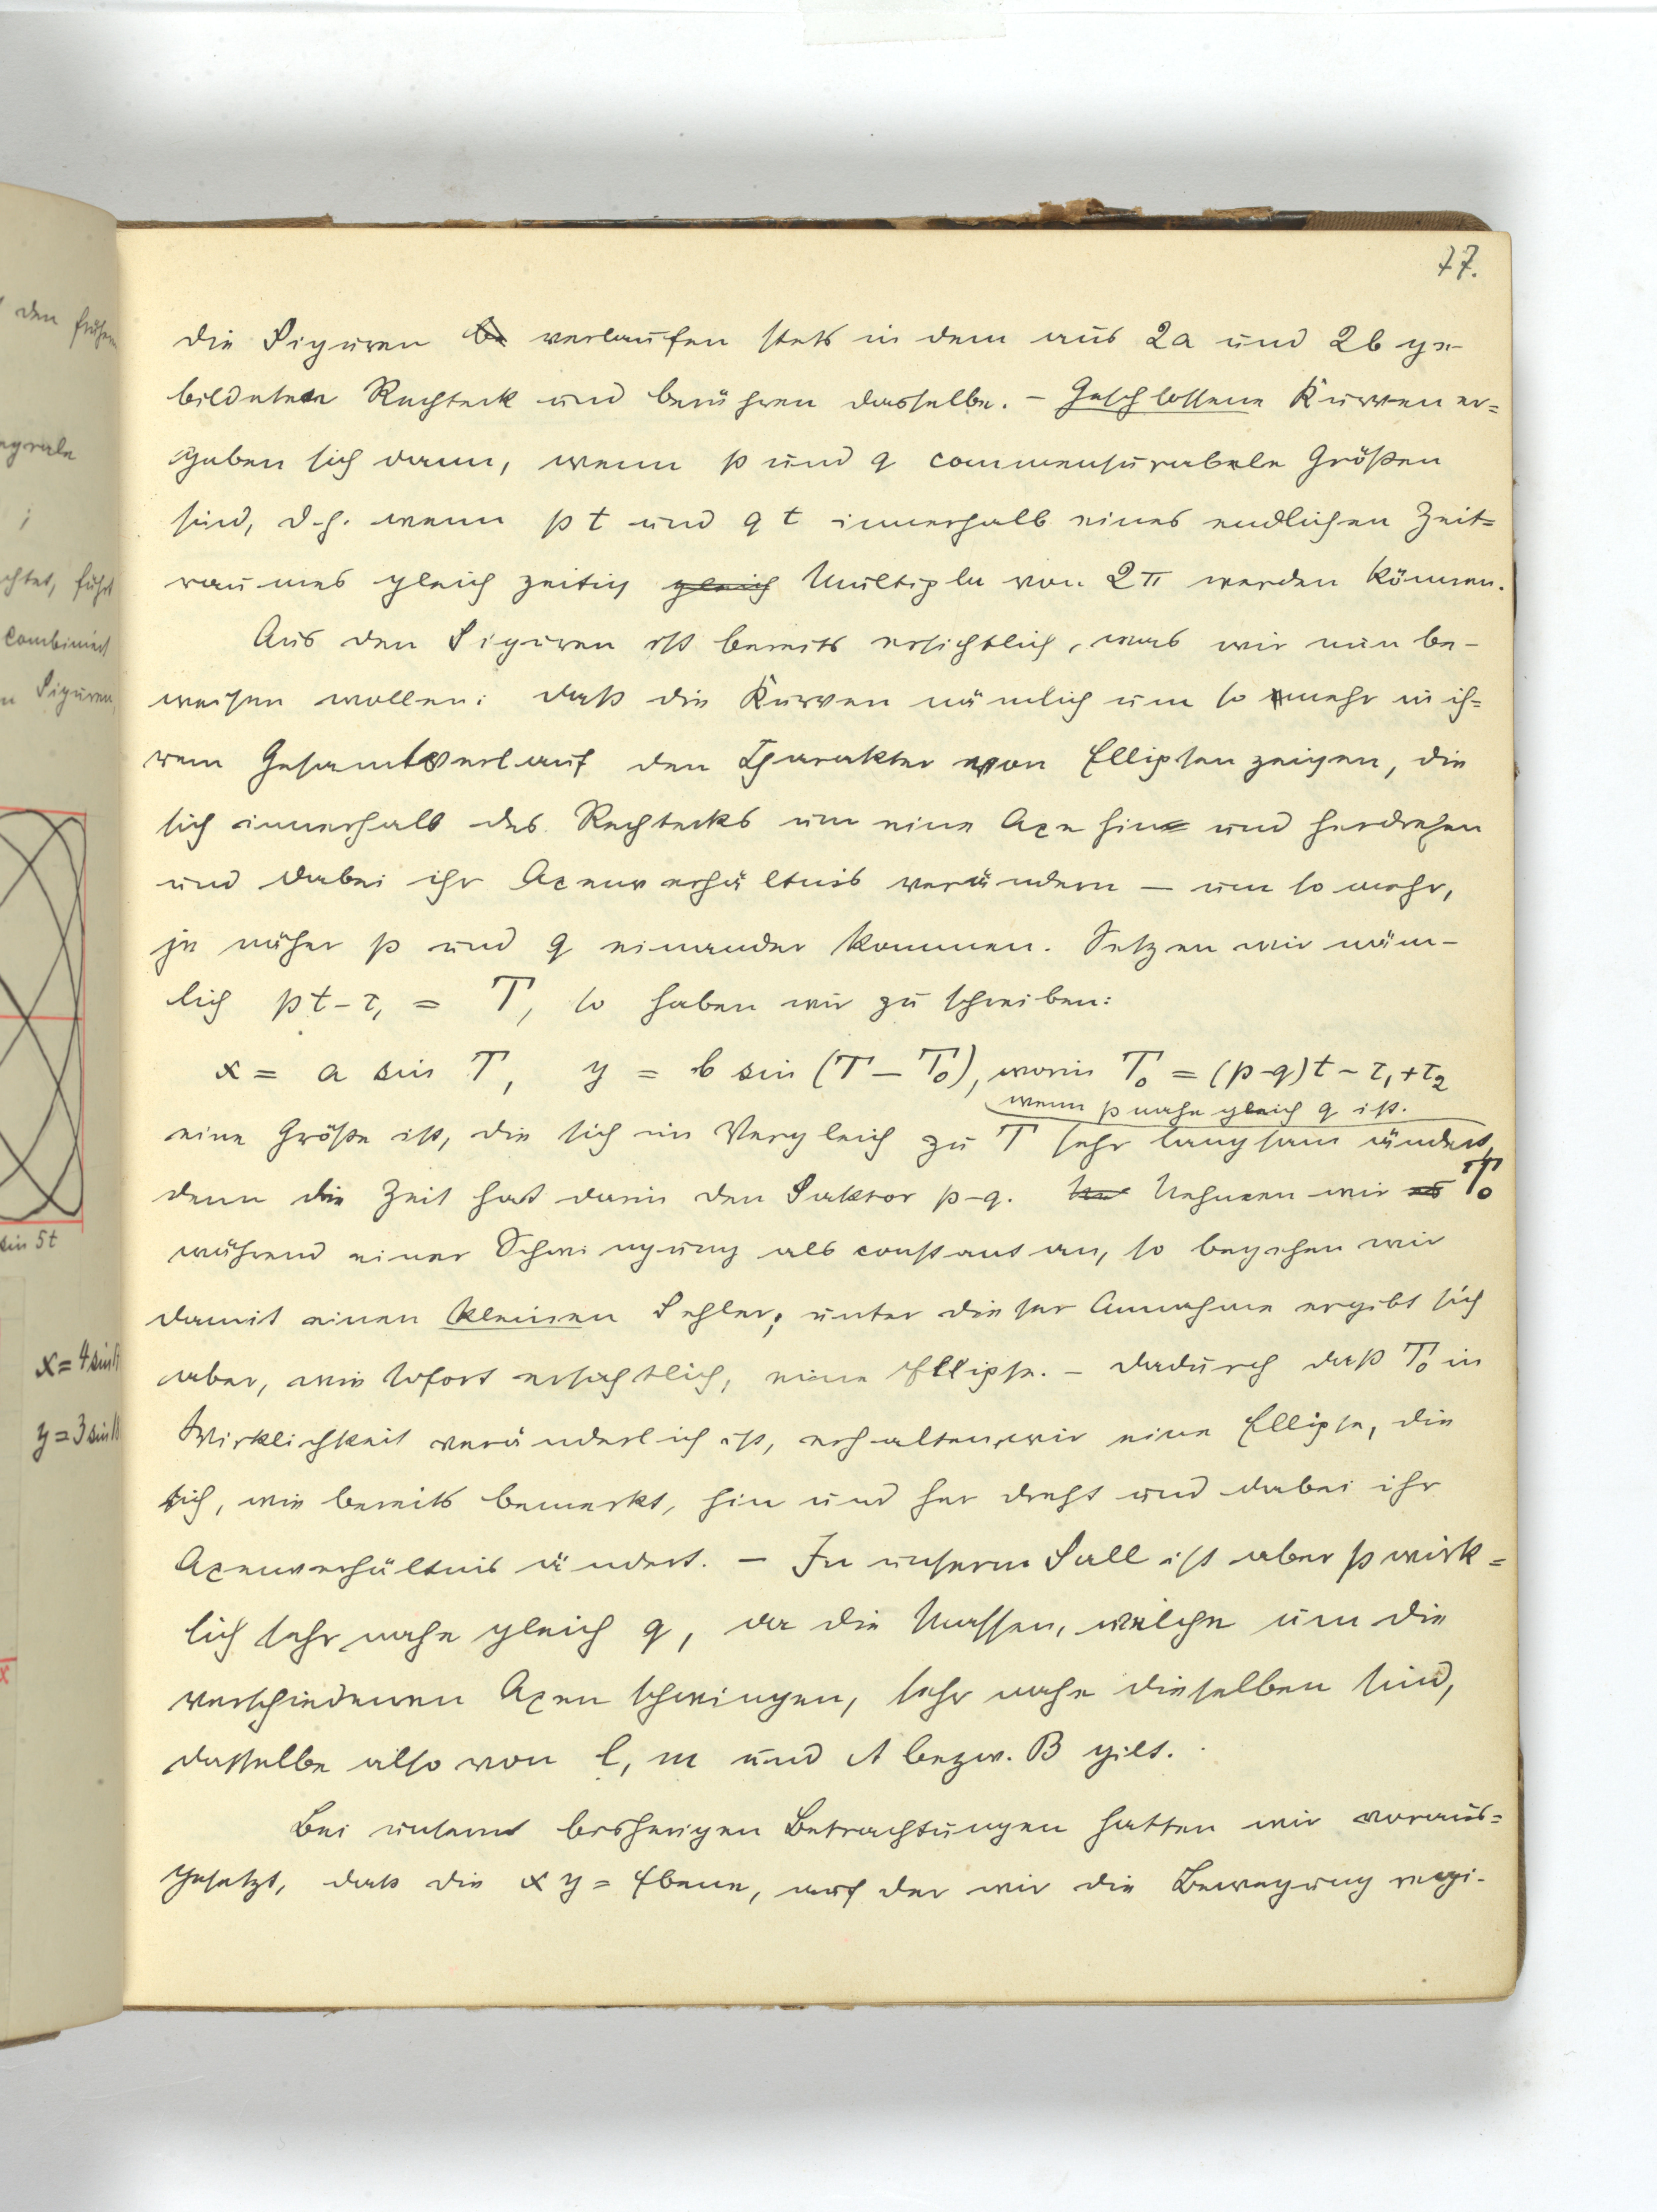 77.
die Figuren verlaufen stets in dem aus 2a und 2b ge-
bildeten Rechteck und berühren dasselbe. – Geschlossene Kurven er=
geben sich dann, wenn p und q commensurabele Größen
sind, d.h. wenn pt und qt innerhalb eines endlichen Zeit=
raumes gleichzeitig gleich Multipla von 2π werden können.
Aus den Figuren ist bereits ersichtlich, was wir nun be-
weisen wollen: daß die Kurven nämlich um so mehr in ih=
rem Gesamtverlauf den Charakter von Ellipsen zeigen, die
sich innerhalb des Rechtecks um eine Axe hin und herdrehen
und dabei ihr Axenverhältnis verändern – um so mehr,
je näher p und q einander kommen. Setzen wir näm-
lich pt - τ₁ = T, so haben wir zu schreiben:
x = a sin T, y = b sin (T - T₀), worin T₀ = (p-q)t - τ₁ + τ₂
wenn p nahe gleich q ist.
eine Größe ist, die sich im Vergleich zu T sehr langsam ändert,
denn die Zeit hat darin den Faktor p-q. Nehmen wir T₀
während einer Schwingung als constant an, so begehen wir
damit einen kleinen Fehler; unter dieser Annahme ergibt sich
aber, wie sofort ersichtlich, eine Ellipse. – Dadurch daß T₀ in
Wirklichkeit veränderlich ist, erhalten wir eine Ellipse, die
sich, wie bereits bemerkt, hin und her dreht und dabei ihr
Axenverhältnis ändert. – In unserm Fall ist aber p wirk=
lich sehr nahe gleich q, da die Massen, welche um die
verschiedenen Axen schwingen, sehr nahe dieselben sind,
dasselbe also von l, m und A bezw. B gilt.
Bei unseren bisherigen Betrachtungen hatten wir voraus=
gesetzt, daß die xy = Ebene, auf der wir die Bewegung regi-
den frühern
egrale
;
chtet, führt
combiniert
n Figuren,
sin 5t
x = 4 sin
y = 3 sin
x